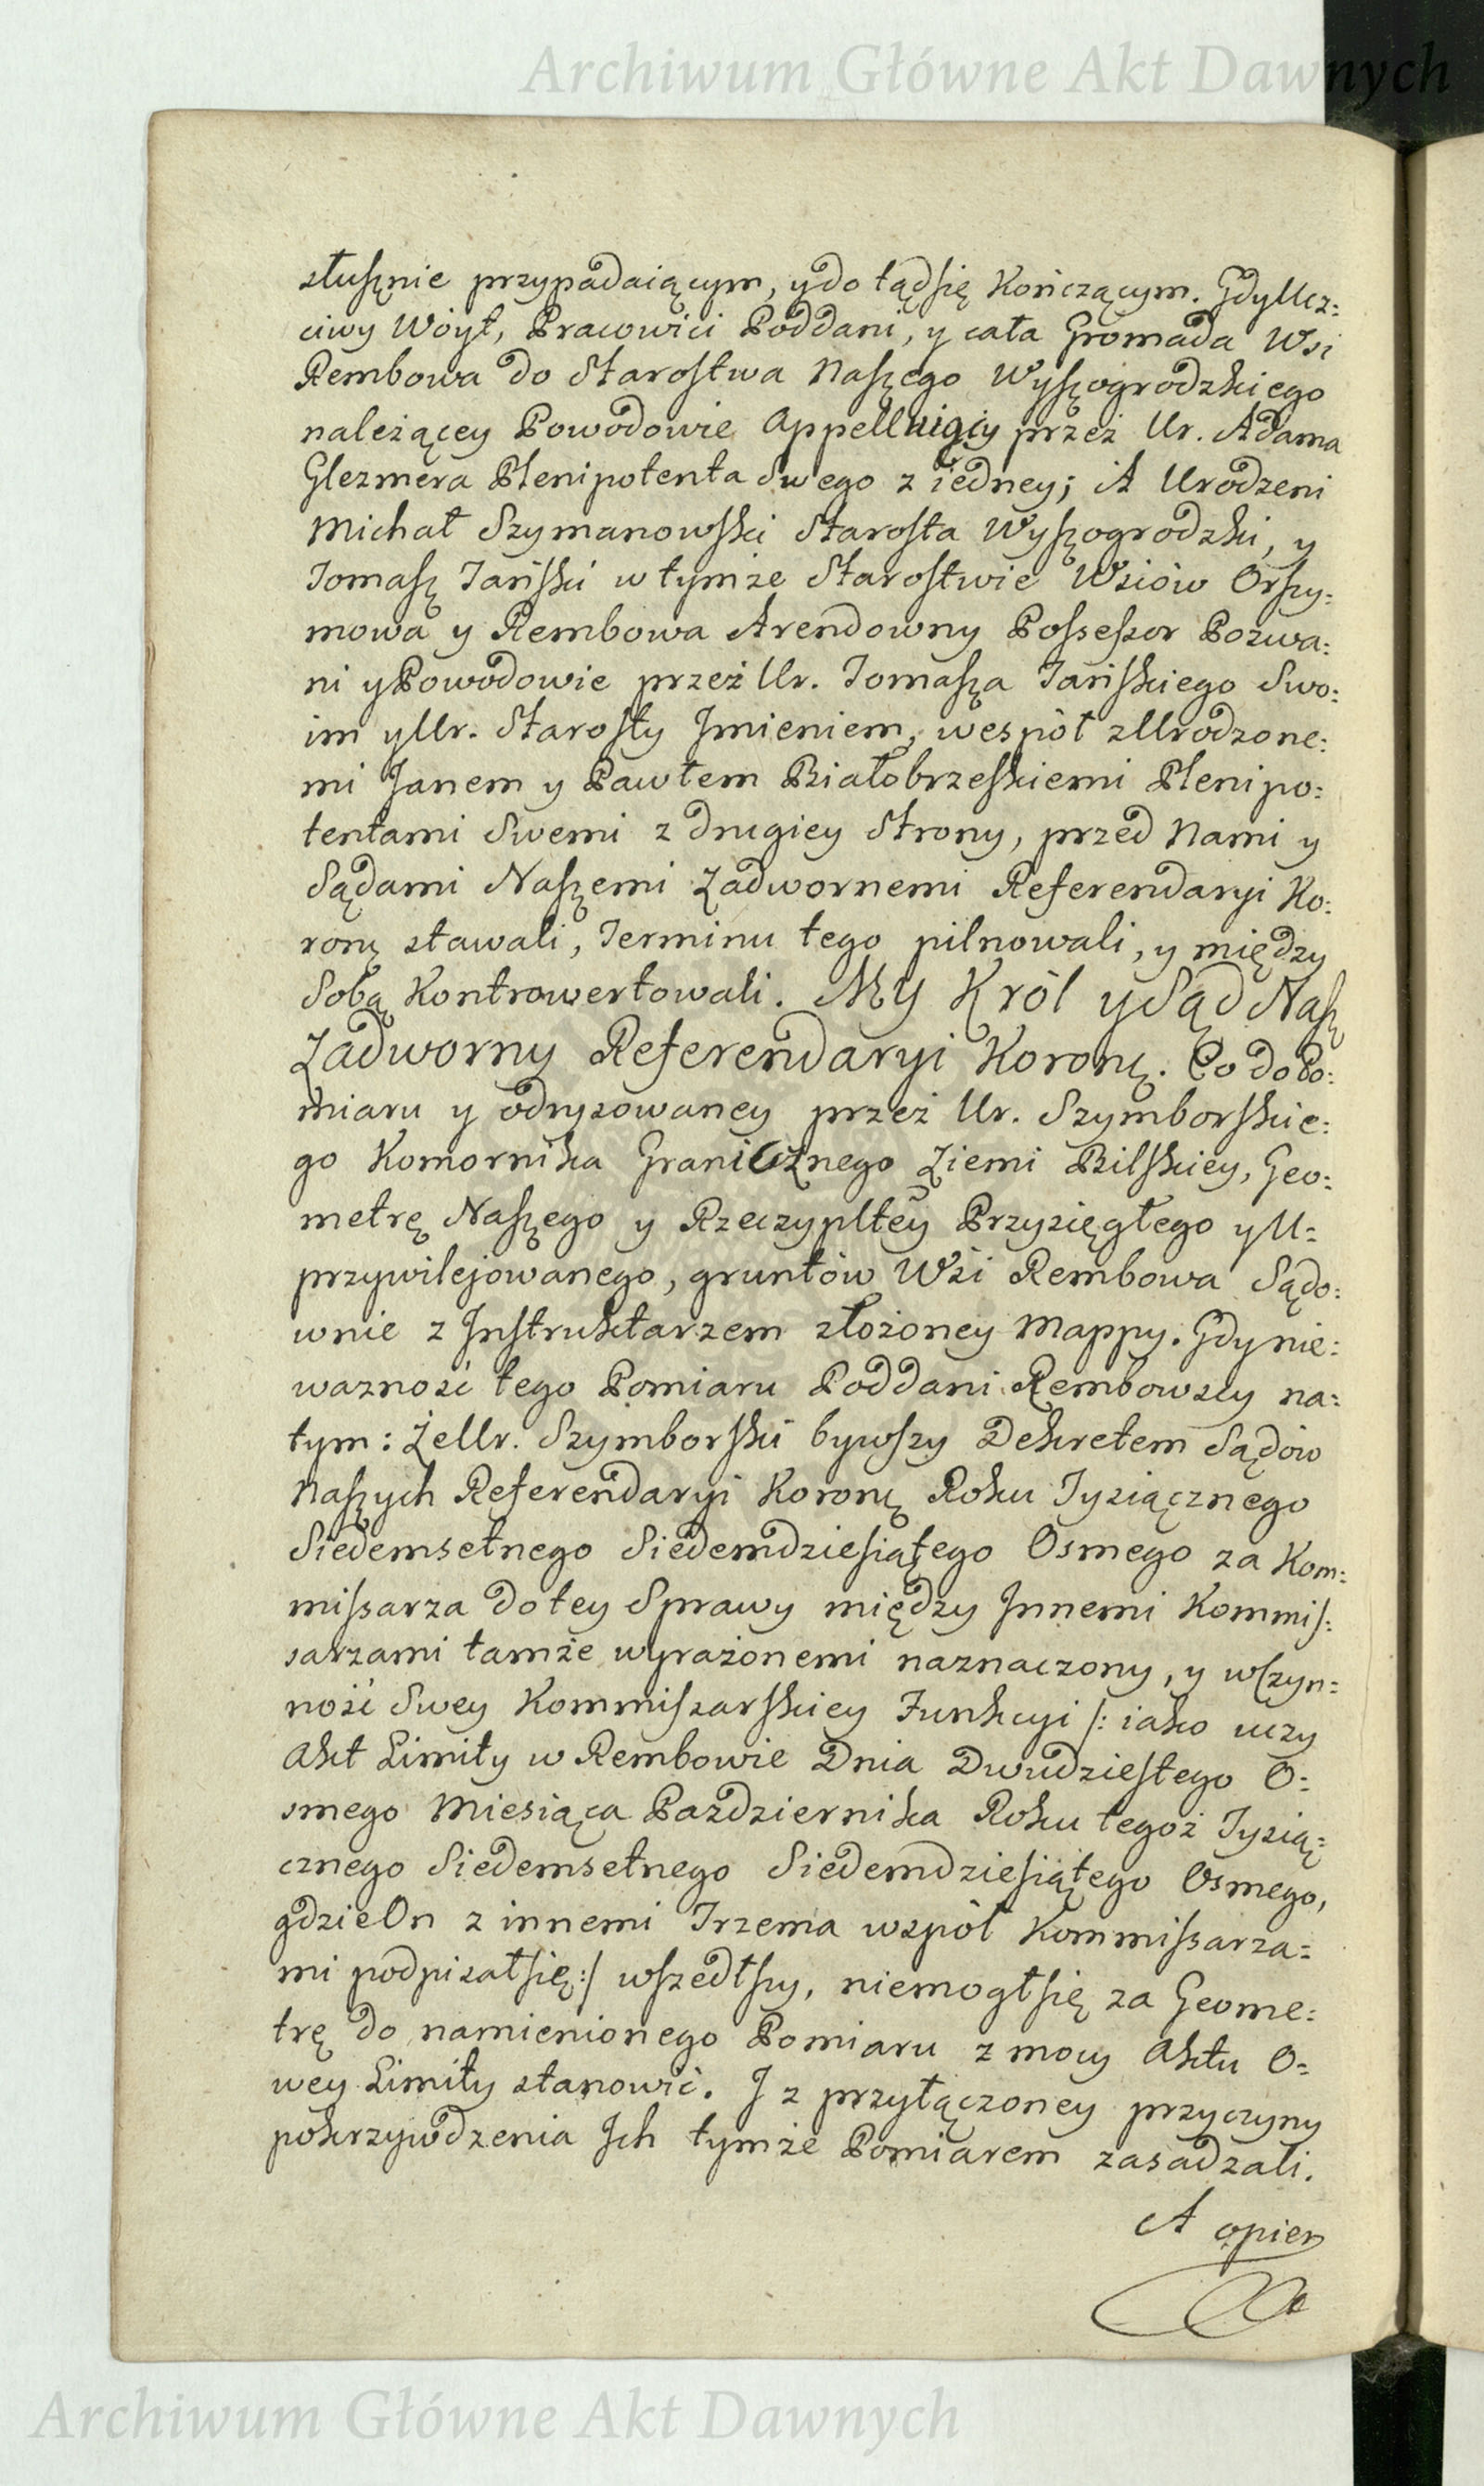 Archiwum Główne Akt Dawnych
słusznie przypadaiącym, y do tąd się kończącym. Gdy Ucz=
ciwy Woyt, Pracowici Poddani, y cała Gromada Wsi
Rembowa do Starostwa Naszego Wyszogrodzkiego
należącey Powodowie Appelluiący przez Ur. Adama
Glezmera Plenipotenta Swego z iedney; A Urodzeni
Michał Szymanowski Starosta Wyszogrodzki, y
Tomasz Jański w tymże Starostwie Wsiów Orszy=
mowa y Rembowa Arendowny Possessor Pozwa=
ni y Powodowie przez Ur. Tomasza Jańskiego Swo=
im y Ur. Starosty Jmieniem, wespół z Urodzone=
mi Janem y Pawłem Białobrzeskiemi Plenipo=
tentami Swemi z drugiey Strony, przed Nami y
Sądami Naszemi Zadwornemi Referendaryi Ko=
ronę stawali, Terminu tego pilnowali, y między
Sobą Kontrowertowali. My Król y Sąd Nasz
Zadworny Referendaryi Koronę. Co do Po=
miaru y odrysowaney przez Ur. Szymborskie=
go Komornika Granicznego Ziemi Bilskiey, Geo=
metrę Naszego y Rzeczypltey Przysięgłego y U=
przywilejowanego, gruntów Wsi Rembowa Sądo=
wnie z Jnstruktarzem złożoney Mappy. Gdy nie=
wazność tego Pomiaru Poddani Rembowscy na=
tym: Że Ur. Szymborski bywszy Dekretem Sądów
Naszych Referendaryi Koronę Roku Tysiącznego
Siedemsetnego Siedemdziesiątego Osmego za Kom=
missarza do tey Sprawy między Jnnemi Kommis=
sarzami tamże wyrażonemi naznaczony, y w czyn=
ność Swey Kommissarskiey Funkcyi /: iako uczy
Akt Limity w Rembowie Dnia Dwudziestego O=
smego Miesiąca Pazdziernika Roku tegoż Tysią=
cznego Siedemsetnego Siedemdziesiątego Osmego,
gdzie On z innemi Trzema współ Kommissarza=
mi podpisał się :/ wszedłszy, niemogł się za Geome=
trę do namienionego Pomiaru z mocy Aktu O=
wey Limity stanowić. J z przyłączoney przyczyny
pokrzywdzenia Jch tymże Pomiarem zasadzali.
A opier
Archiwum Główne Akt Dawnych